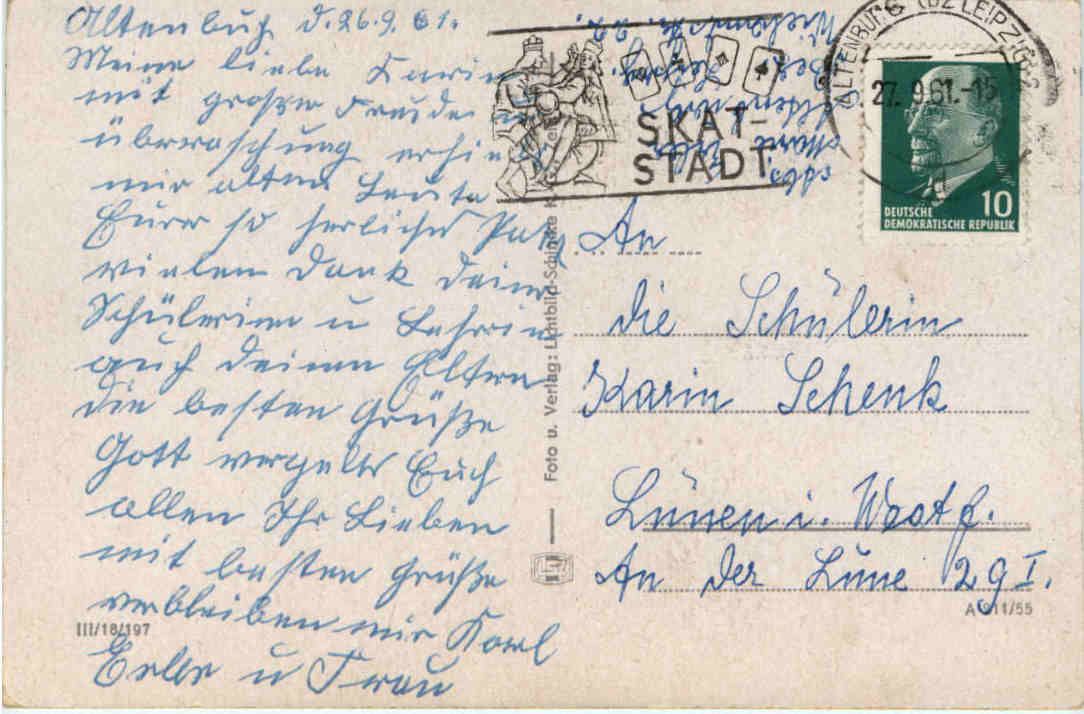 Altenburg d. 26.9.61.
Meine liebe Karin
mit großer Freude u
überraschung erhie
wir alten Leute
Eurer so herliches Pak
vielen Dank deine
Schülerinn u Lehrerin
auch deinen Eltern
die besten Grüße
Gott vergelts Euch
allen Ihr Lieben
mit besten Grüße
verbleiben wir Karl
u Frau
III/18/197
Foto u. Verlag: Lichtbild-Schincke
SKAT-
STADT
ALTENBURG (BZ LEIPZIG)
27. 9.61.-15
d
DEUTSCHE
DEMOKRATISCHE REPUBLIK
10
An
die Schülerin
Karin Schenk
Lünen i. Westf.
An der Lüne 29 I.
A 911/55